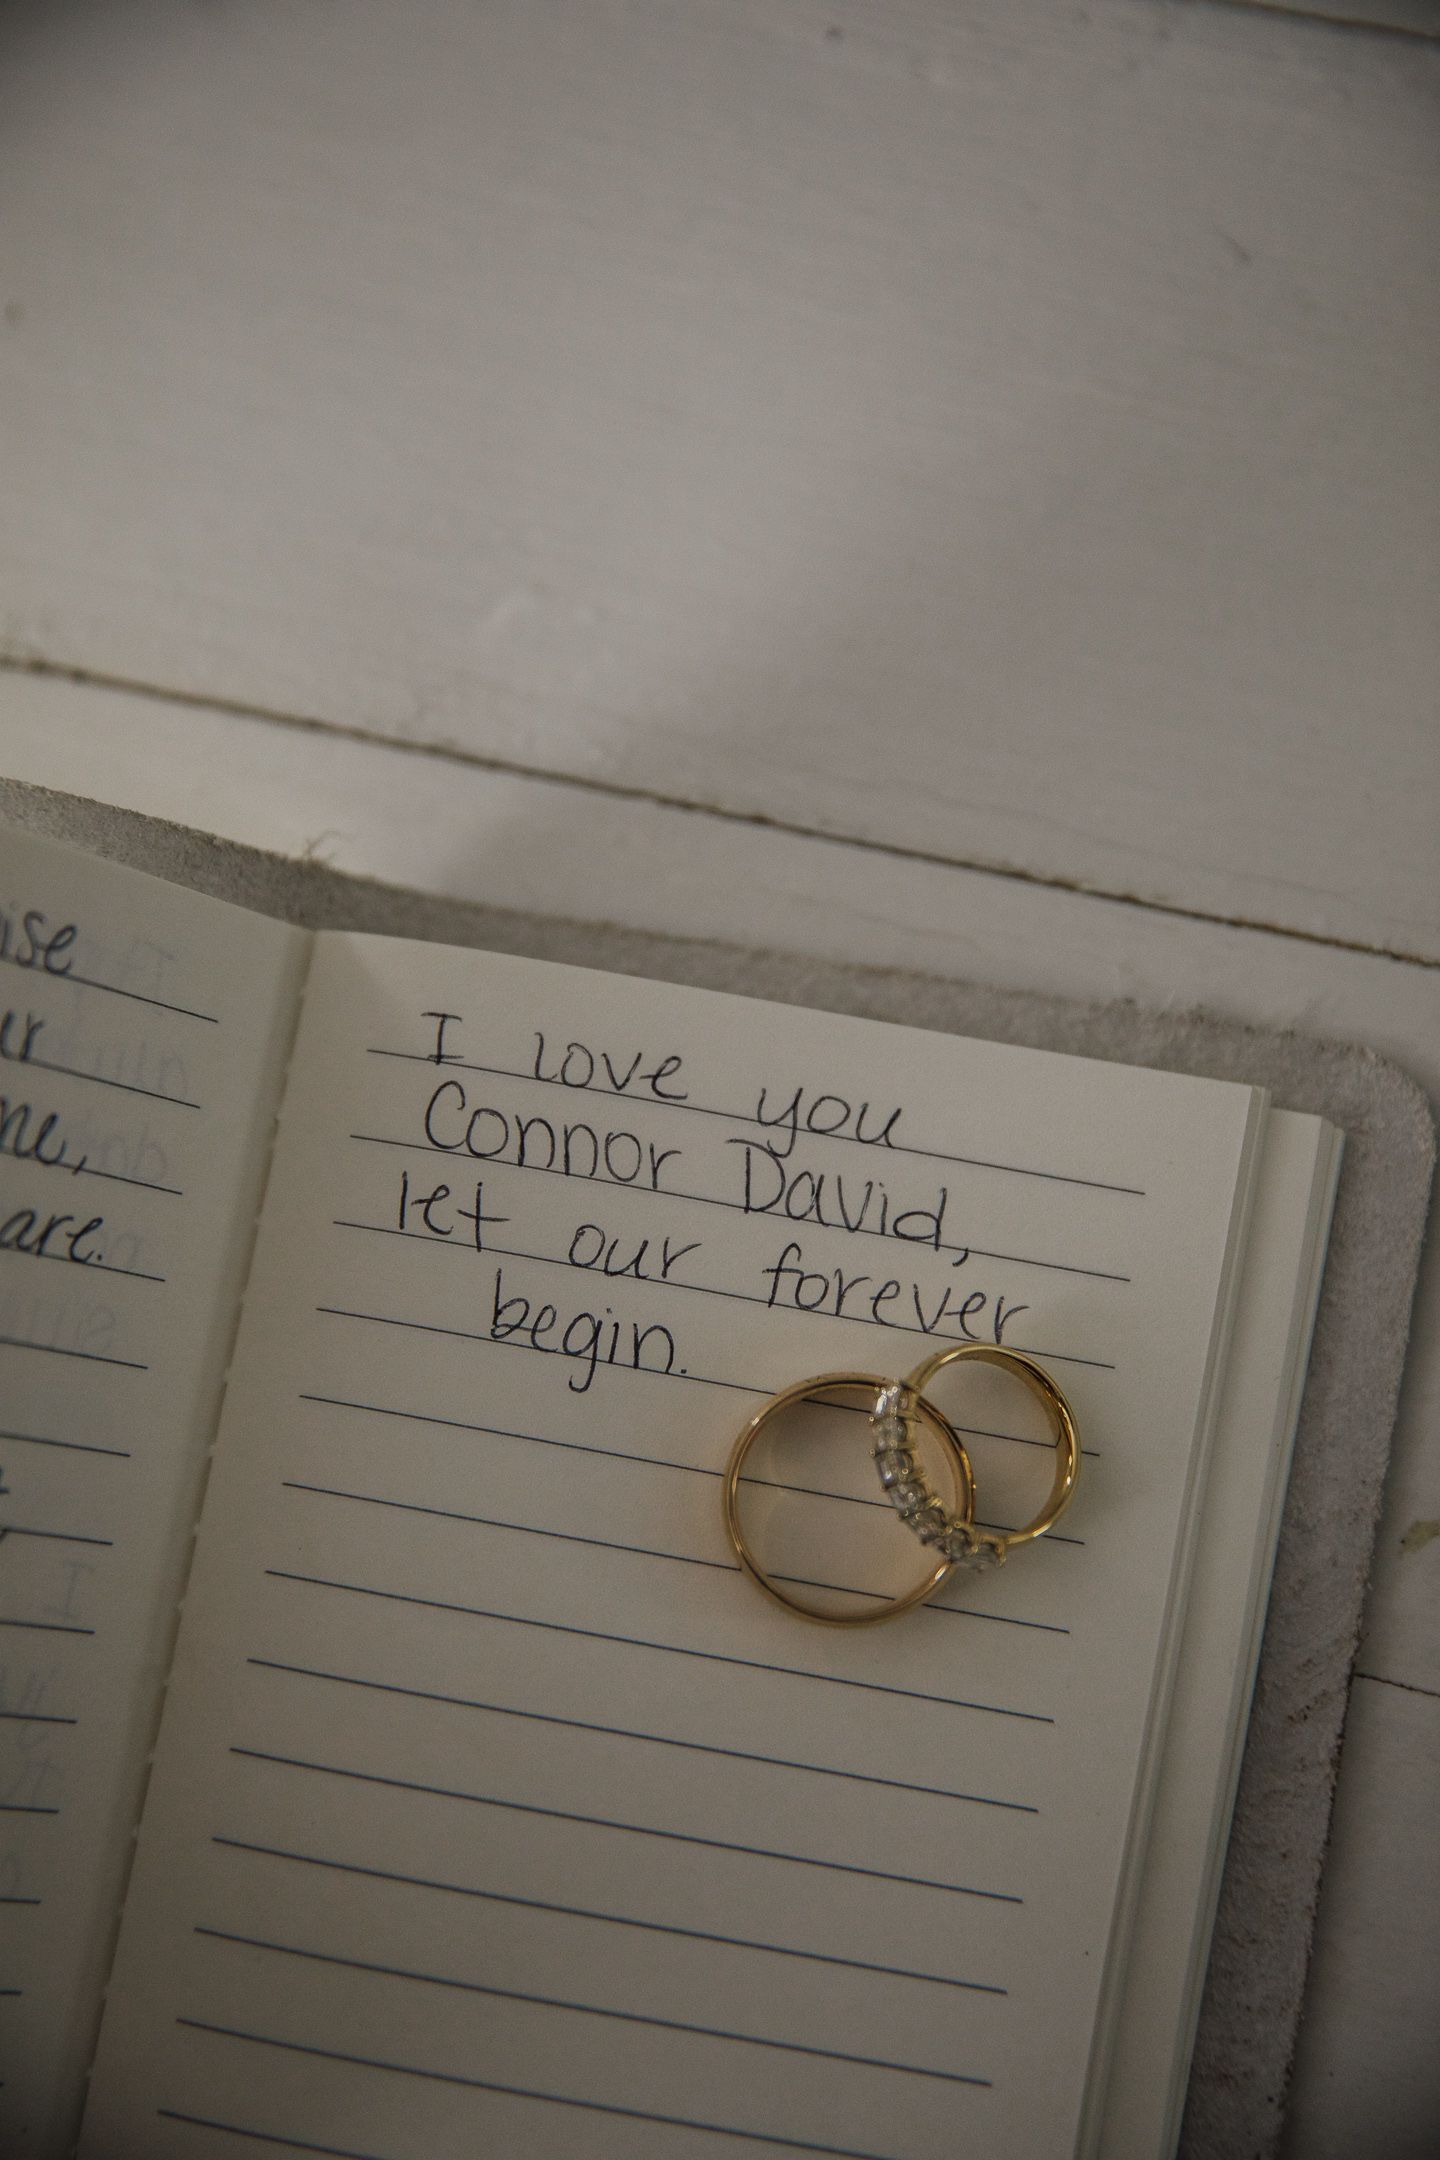 ur
me,
are.
I love you
Connor David,
let our forever
begin.